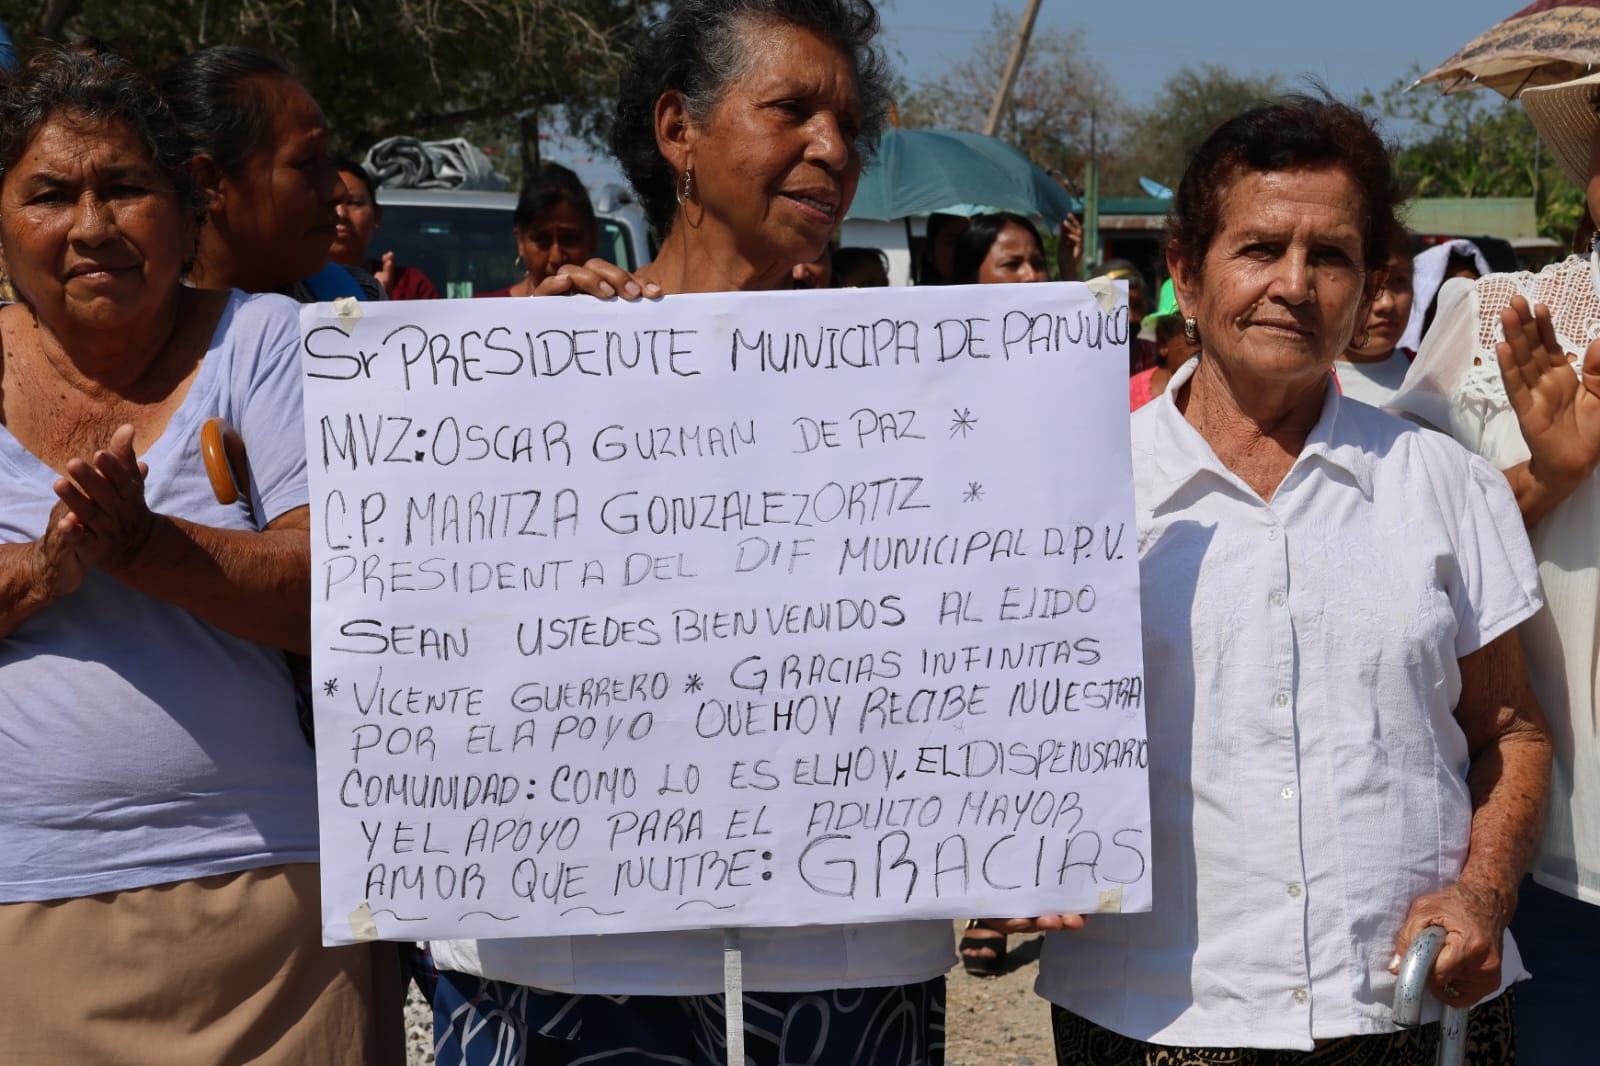 Sr PRESIDENTE MUNICIPA DE PANUCO
MVZ: OSCAR GUZMAN DE PAZ *
C.P. MARITZA GONZALEZ ORTIZ *
PRESIDENTA DEL DIF MUNICIPAL D.P.V.
SEAN USTEDES BIENVENIDOS AL EJIDO
* VICENTE GUERRERO * GRACIAS INFINITAS
POR EL APOYO QUE HOY RECIBE NUESTRA
COMUNIDAD: COMO LO ES EL HOY. EL DISPENSARIO
Y EL APOYO PARA EL ADULTO MAYOR
AMOR QUE NUTRE: GRACIAS